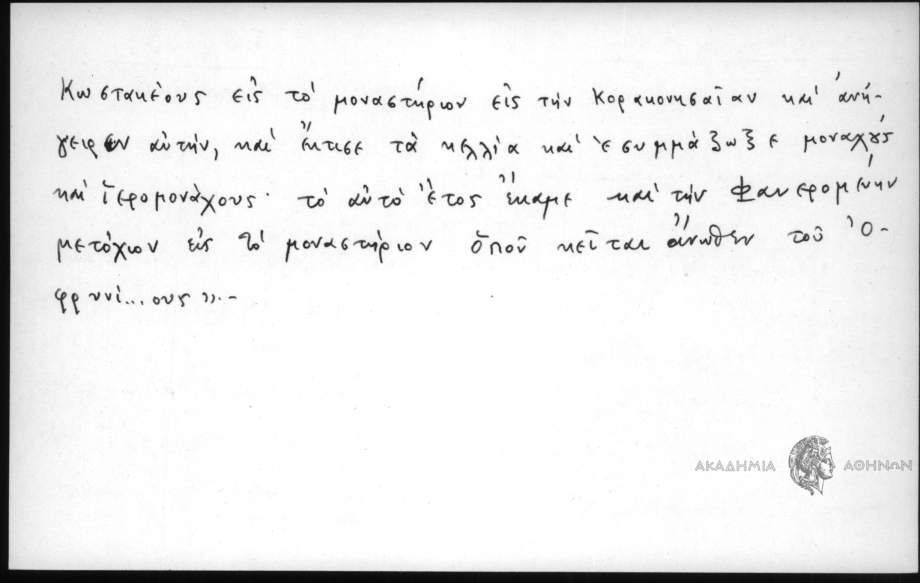 Κωστακέους εἰς τὸ μοναστήριον εἰς τὴν Κορακονησαῖαν καὶ ἀνή-
γειρεν αὐτήν, καὶ ἔκτισε τὰ κελλία καὶ ἐσυμμάζωξε μοναχοὺς
καὶ ἱερομονάχους· τὸ αὐτὸ ἔτος ἔκαμε καὶ τὴν Φανερομένην
μετόχιον εἰς τὸ μοναστήριον ὅπου κεῖται ἄνωθεν τοῦ Ὀ-
φρυνί...ους».-
ΑΚΑΔΗΜΙΑ ΑΘΗΝΩΝ